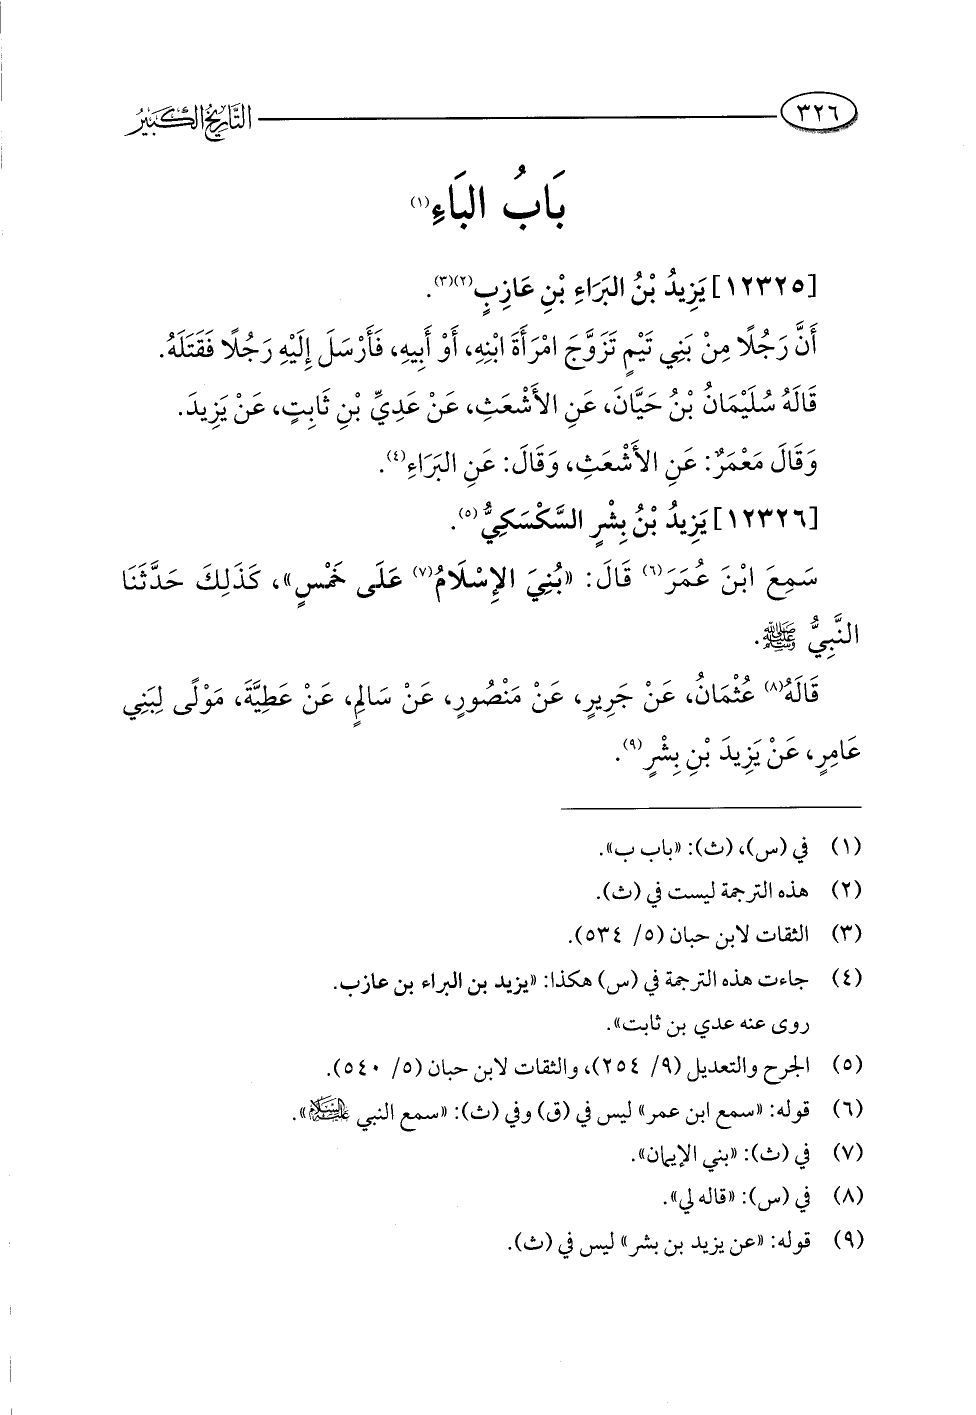 ٣٢٦ التَّارِيخُ الكَبِير
بَابُ البَاءِ(١)
[١٢٣٢٥] يَزِيدُ بْنُ البَرَاءِ بْنِ عَازِبٍ(٢)(٣).
أَنَّ رَجُلًا مِنْ بَنِي تَيْمٍ تَزَوَّجَ امْرَأَةَ ابْنِهِ، أَوْ أَبِيهِ، فَأَرْسَلَ إِلَيْهِ رَجُلًا فَقَتَلَهُ.
قَالَهُ سُلَيْمَانُ بْنُ حَيَّانَ، عَنِ الأَشْعَثِ، عَنْ عَدِيِّ بْنِ ثَابِتٍ، عَنْ يَزِيدَ.
وَقَالَ مَعْمَرٌ: عَنِ الأَشْعَثِ، وَقَالَ: عَنِ البَرَاءِ(٤).
[١٢٣٢٦] يَزِيدُ بْنُ بِشْرٍ السَّكْسَكِيُّ(٥).
سَمِعَ ابْنَ عُمَرَ(٦) قَالَ: «بُنِيَ الإِسْلَامُ(٧) عَلَى خَمْسٍ»، كَذَلِكَ حَدَّثَنَا
النَّبِيُّ ﷺ.
قَالَهُ(٨) عُثْمَانُ، عَنْ جَرِيرٍ، عَنْ مَنْصُورٍ، عَنْ سَالِمٍ، عَنْ عَطِيَّةَ، مَوْلًى لِبَنِي
عَامِرٍ، عَنْ يَزِيدَ بْنِ بِشْرٍ(٩).
(١) في (س)، (ث): «باب ب».
(٢) هذه الترجمة ليست في (ث).
(٣) الثقات لابن حبان (٥/ ٥٣٤).
(٤) جاءت هذه الترجمة في (س) هكذا: «يزيد بن البراء بن عازب.
روى عنه عدي بن ثابت».
(٥) الجرح والتعديل (٩/ ٢٥٤)، والثقات لابن حبان (٥/ ٥٤٠).
(٦) قوله: «سمع ابن عمر» ليس في (ق) وفي (ث): «سمع النبي عليه السلام».
(٧) في (ث): «بني الإيمان».
(٨) في (س): «قاله لي».
(٩) قوله: «عن يزيد بن بشر» ليس في (ث).